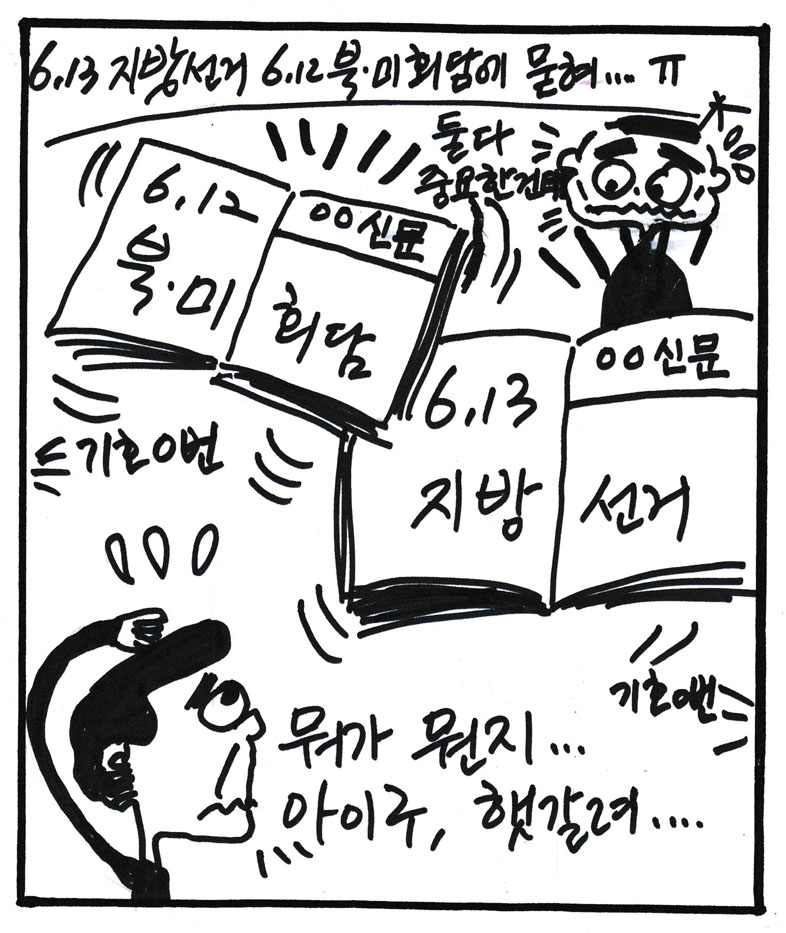 6.13 지방선거 6.12 북·미회담에 묻혀.... ㅠ
둘다
중요한건데
6.12
북·미
00신문
회담
6.13
지방
00신문
선거
기호0번
기호0번
뭐가 뭔지...
아이구, 햇갈려....